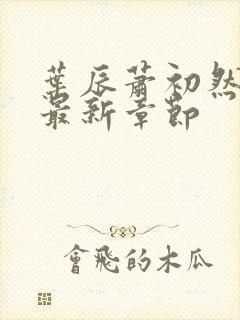 葉辰蕭初然
最新章節
會飛的木瓜